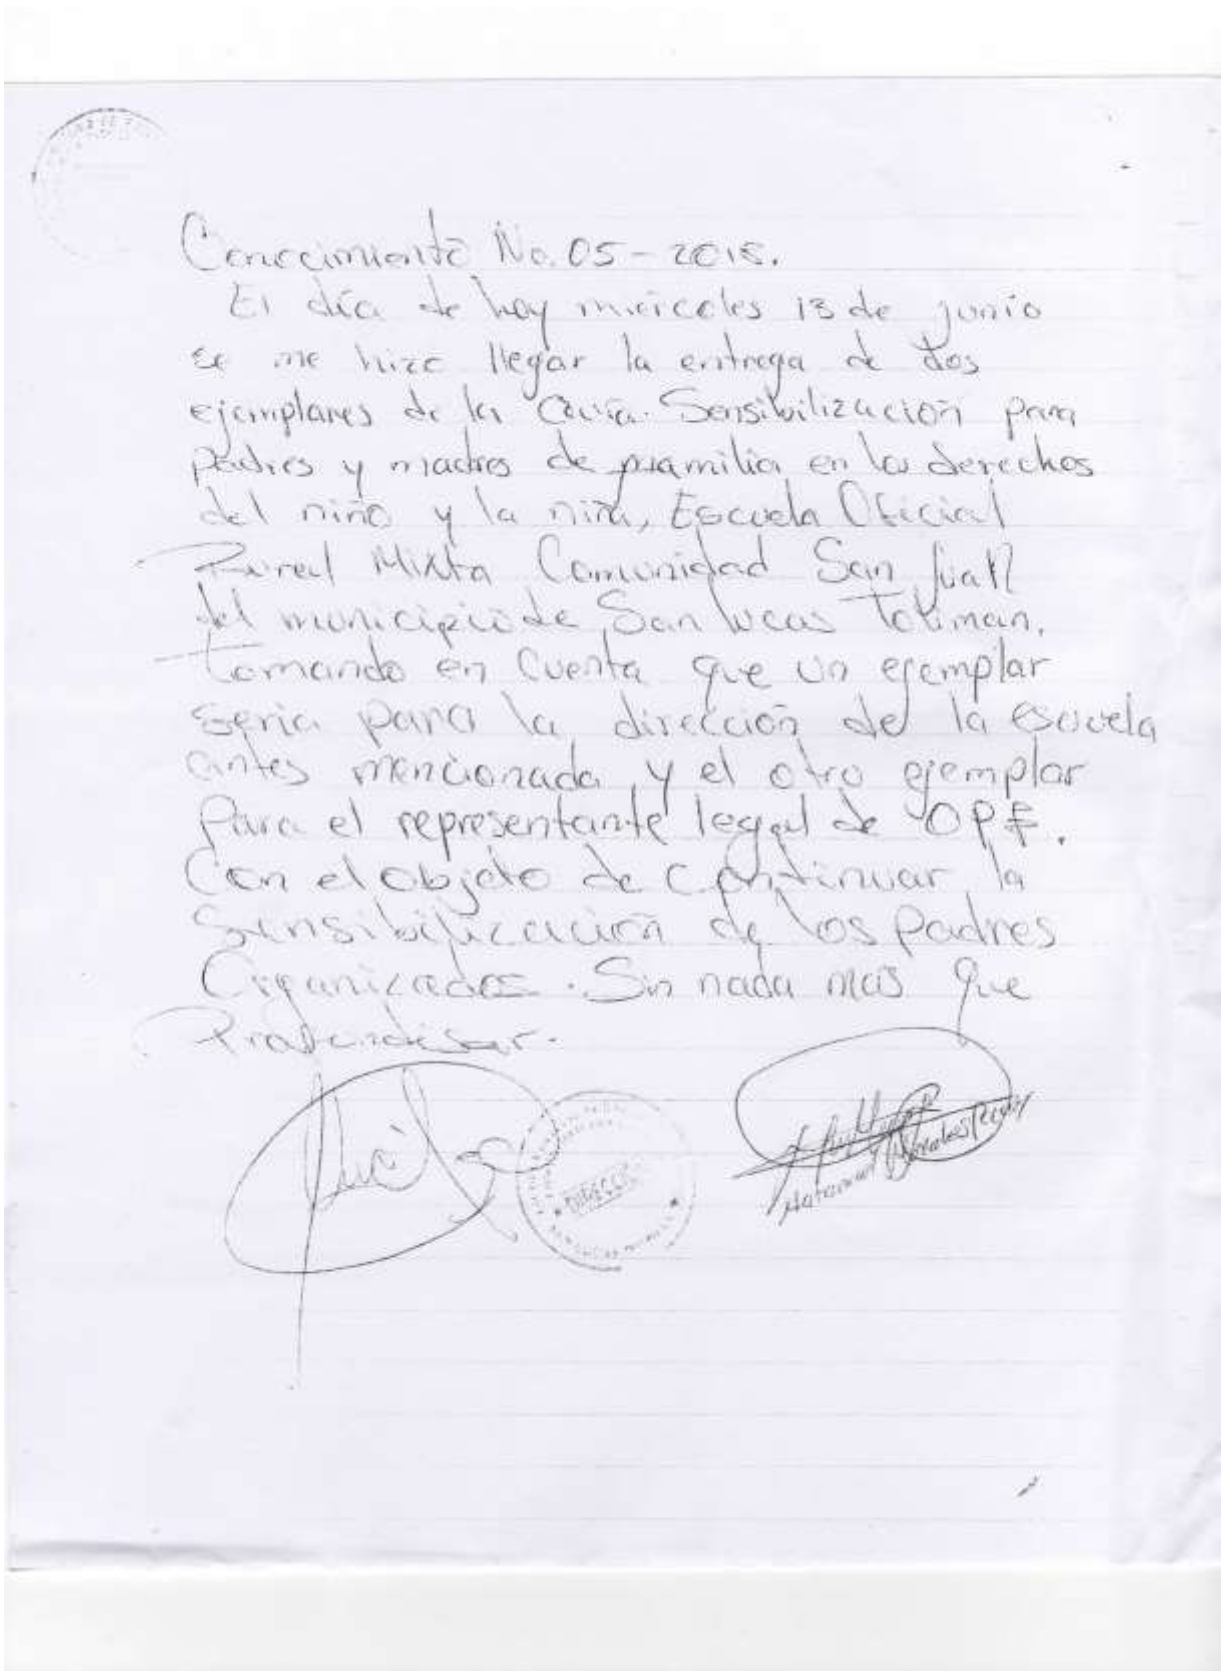 Conocimiento No. 05-2018.
El día de hoy miércoles 13 de junio
se me hizo llegar la entrega de dos
ejemplares de la Guía. Sensibilización para
padres y madres de familia en los derechos
del niño y la niña, Escuela Oficial
Rural Mixta Comunidad San Juan
del municipio de San Lucas Tolimán.
Tomando en Cuenta que un ejemplar
seria para la dirección de la escuela
antes mencionada y el otro ejemplar
Para el representante legal de OPF.
Con el objeto de continuar la
Sensibilización de los padres
Organizados. Sin nada mas que
DIRECCIÓN